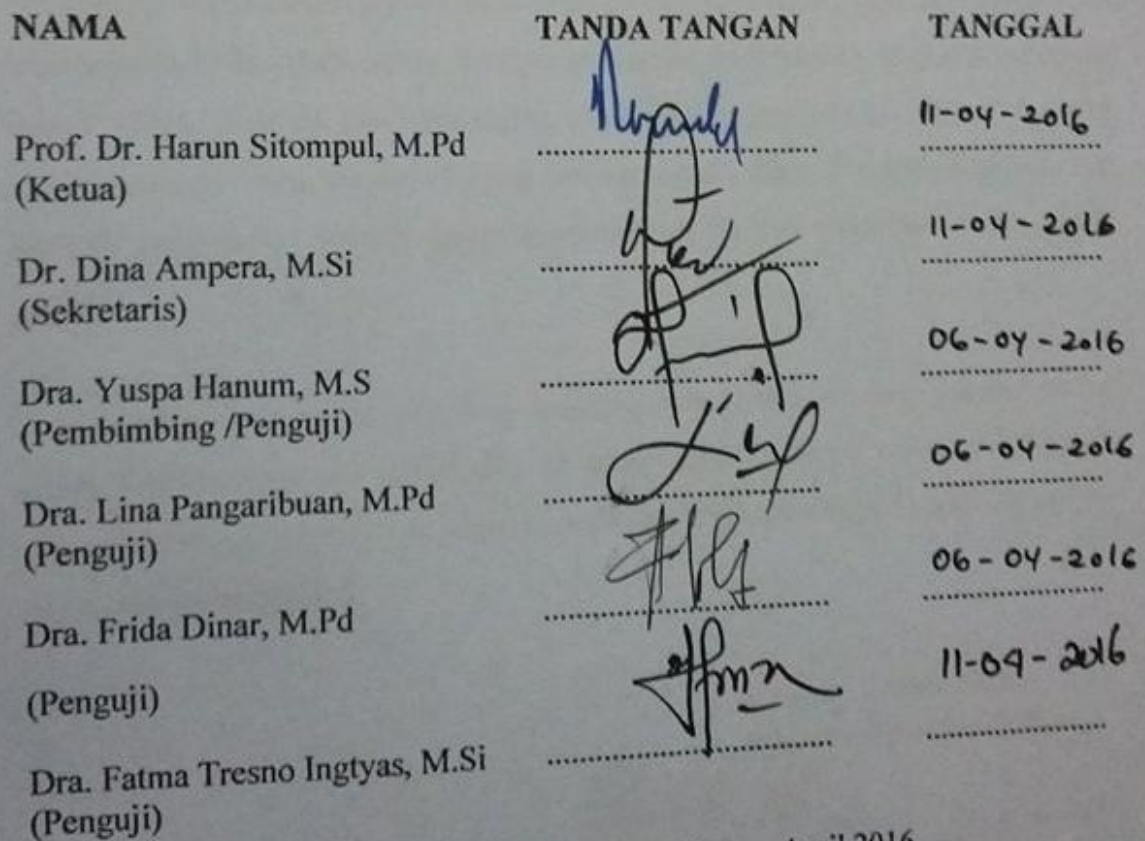 NAMA TANDA TANGAN TANGGAL
11-04-2016
Prof. Dr. Harun Sitompul, M.Pd ..............................
(Ketua)
11-04-2016
Dr. Dina Ampera, M.Si ..............................
(Sekretaris)
06-04-2016
Dra. Yuspa Hanum, M.S ..............................
(Pembimbing /Penguji)
06-04-2016
Dra. Lina Pangaribuan, M.Pd ..............................
(Penguji)
06-04-2016
Dra. Frida Dinar, M.Pd ..............................
(Penguji)
11-04-2016
Dra. Fatma Tresno Ingtyas, M.Si ..............................
(Penguji)
2016